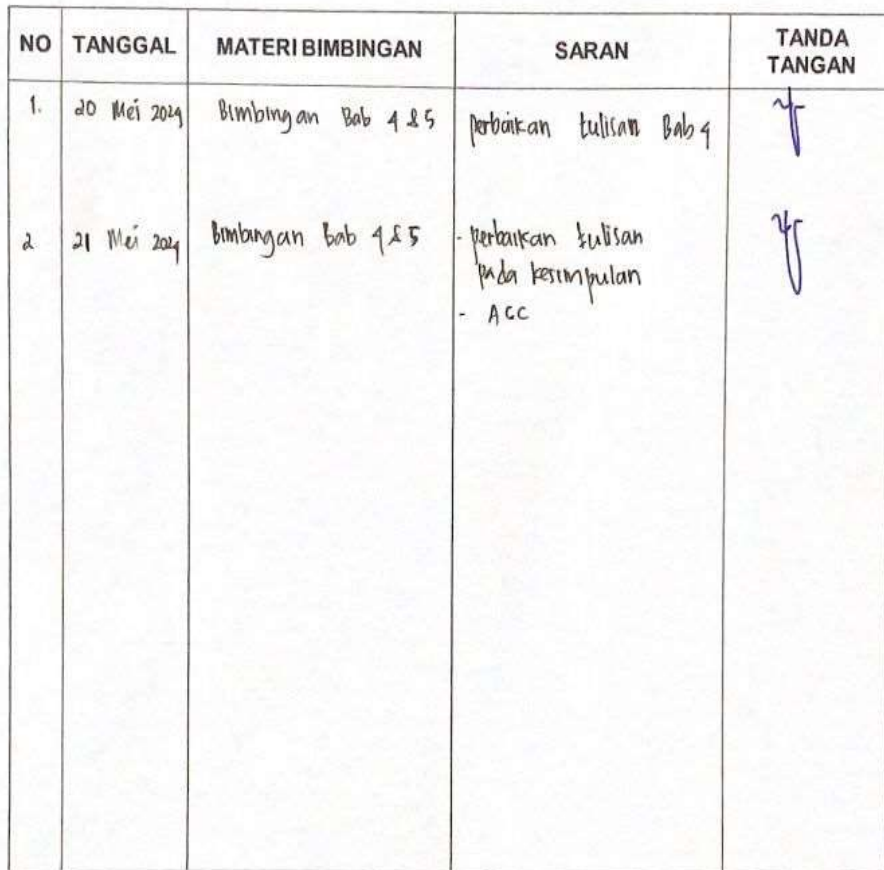 NO TANGGAL MATERI BIMBINGAN SARAN TANDA TANGAN
1. 20 Mei 2024 Bimbingan Bab 4 & 5 perbaikan tulisan Bab 4
2 21 Mei 2024 Bimbingan Bab 4 & 5 - perbaikan tulisan
pada kesimpulan
- ACC